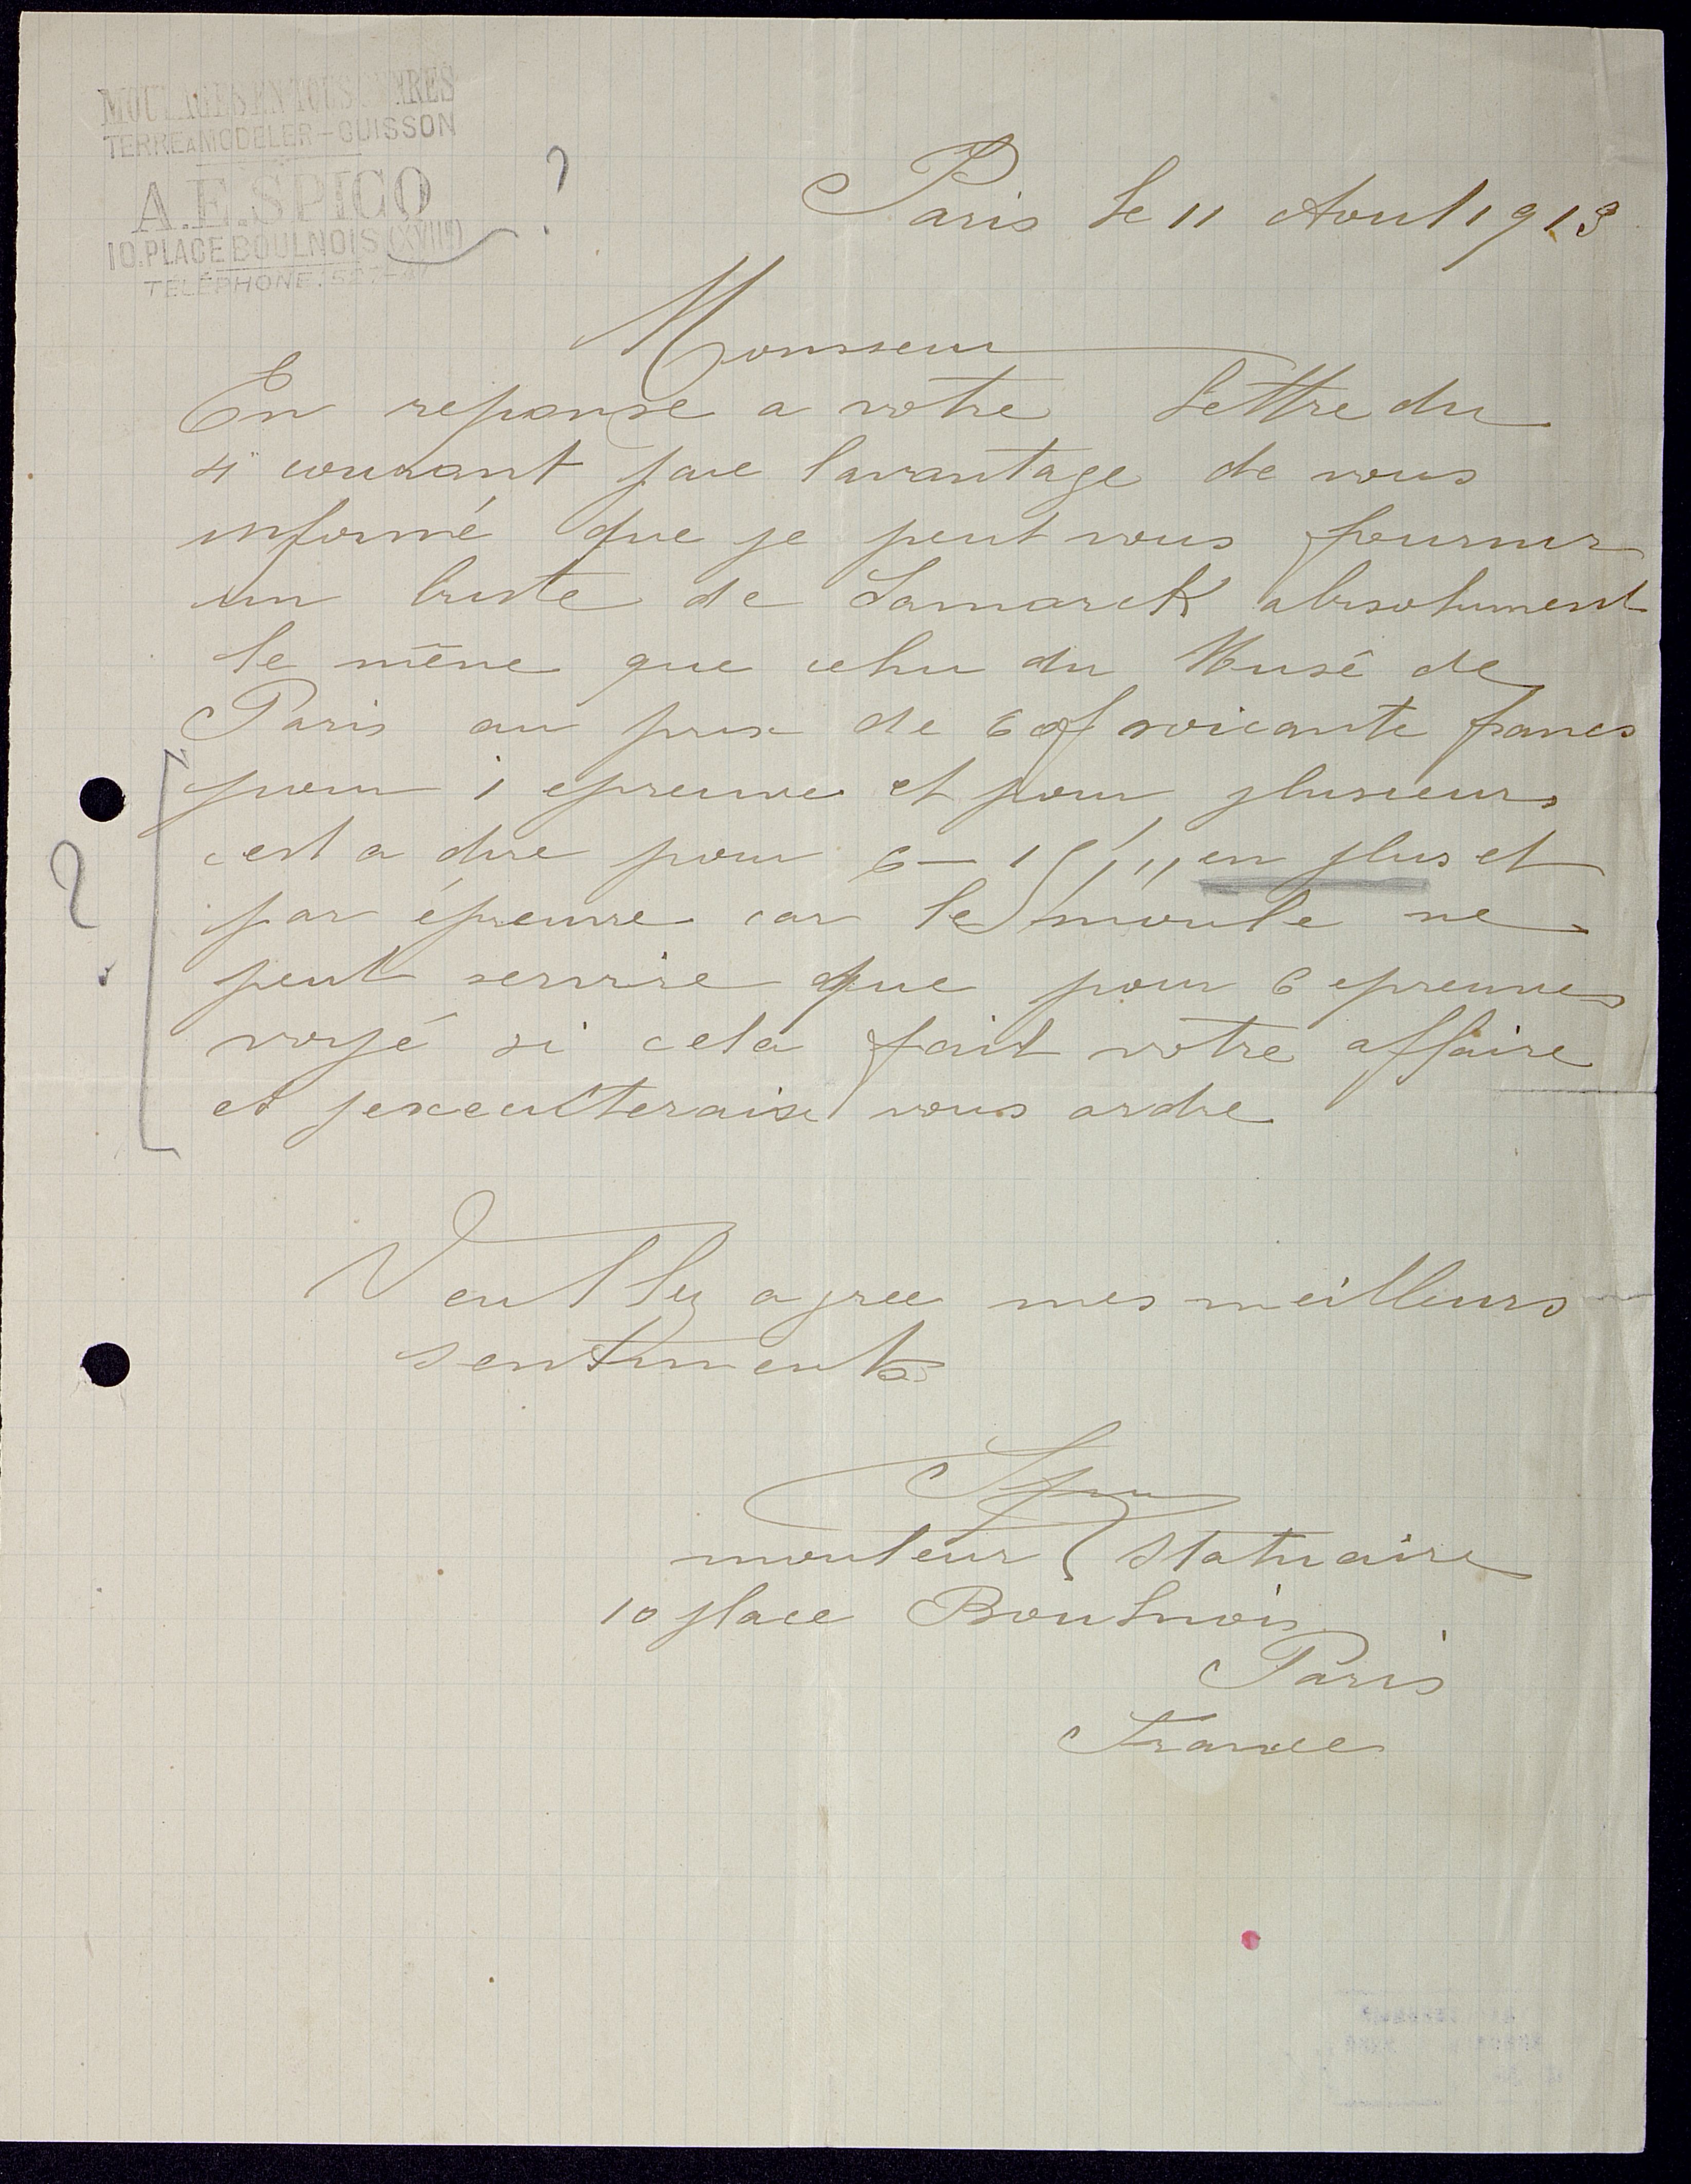 MOULAGES EN TOUS GENRES
TERRE A MODELER - CUISSON
A.E. SPIGO
10. PLACE BOULNOIS (XVIIe)
TÉLÉPHONE: 527-
?
Paris le 11 Aout 1913
Monsieur
En reponse a votre Lettre du
4 courant jaie lavantage de vous
informé que je peut vous fournir
un buste de Lamarck absolument
le même que celui du Musé de
Paris au prix de 60f soicante francs
pour 1 epreuve et pour plusieurs
cest a dire pour 6 - en plus et
par épreuve car le moule ne
peut servire que pour 6 epreuves
voyé si cela fait votre affaire
et jexeculteraix vous ordre
?
Veulley agree mes meilleurs
sentiments
mouleur Statuaire
10 place Boulnois
Paris
France